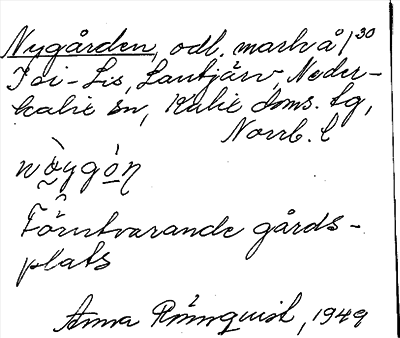 Nygården, odl. mark å 1³⁰
Pei-Lis, Lantjärv, Neder-
kalix sn, Kalix doms. tg,
Norrb. l
Förutvarande gårds-
plats
Anna Rönnquist, 1949